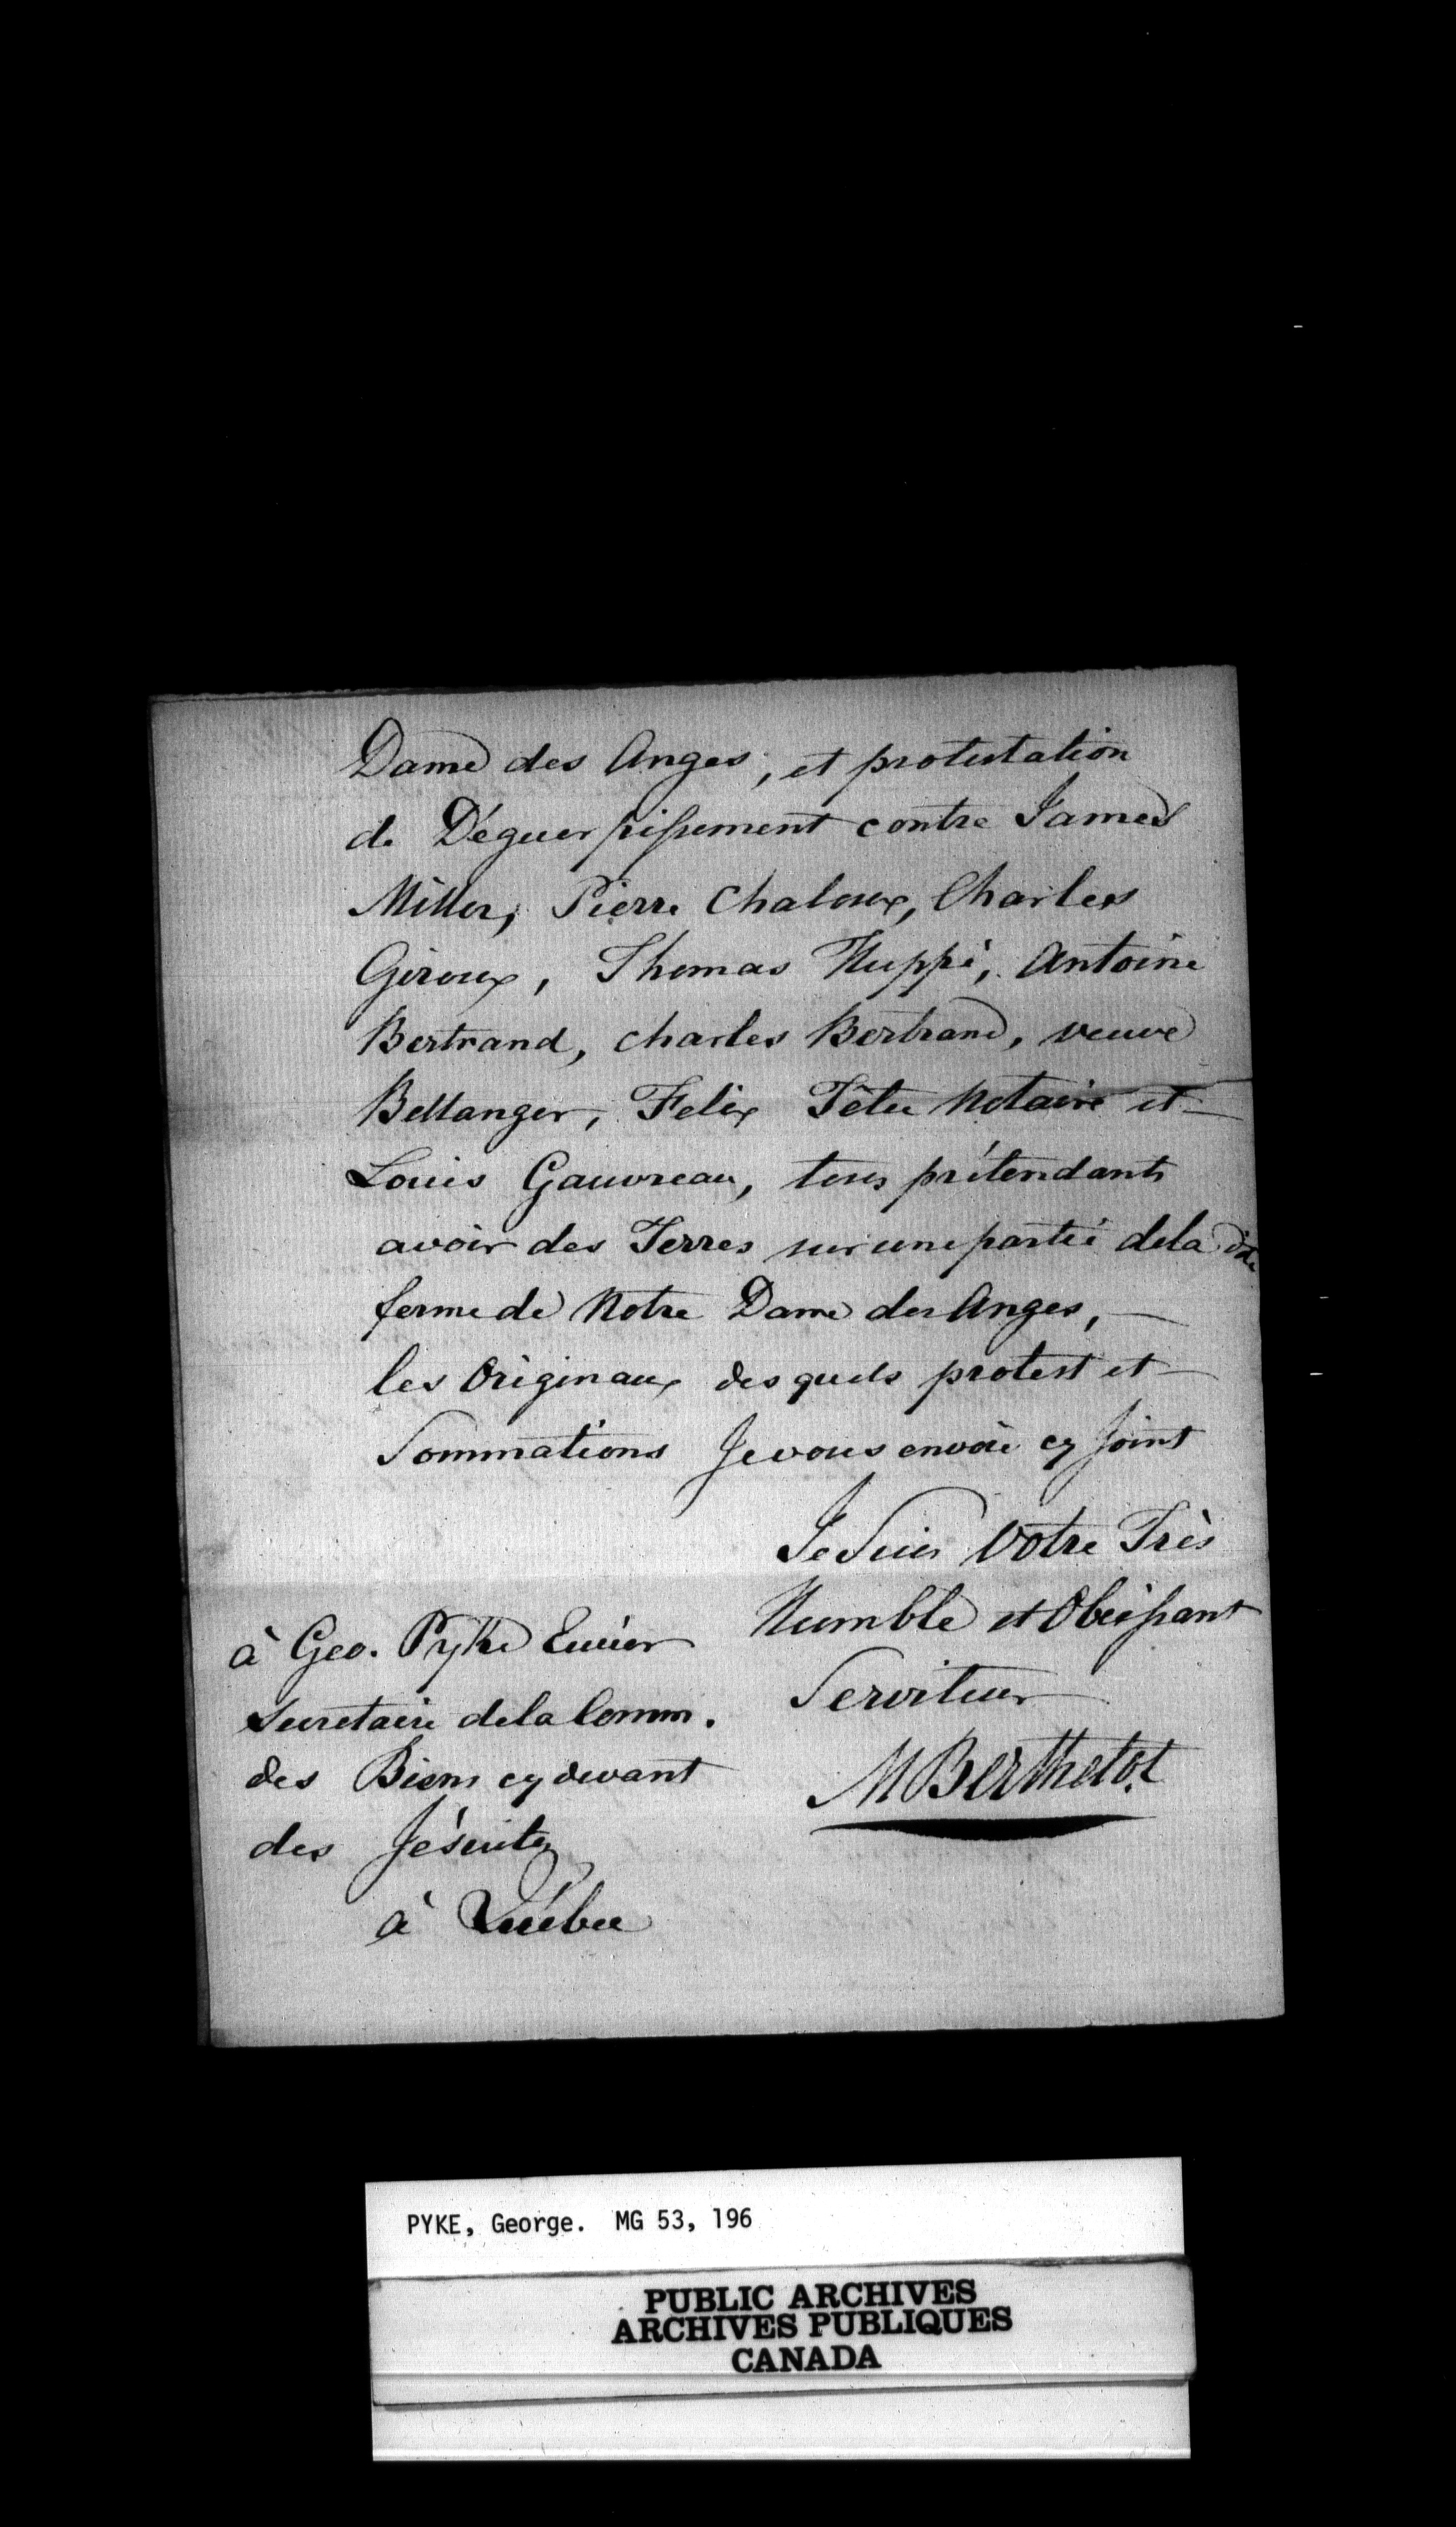 Dame des Anges, et protestation
de Déguerpissement contre James
Miller, Pierre Chaloux, Charles
Giroux, Thomas Huppé, Antoine
Bertrand, charles Bertrand, veuve
Bellanger, Felix Têtu Notaire et
Louis Gauvreau, tous prétendants
avoir des Terres sur une partie dela dte
ferme de Notre Dame des Anges,
les Originaux des quels protest et
Sommations Je vous envoie cy Joint
Je Suis Votre Très
Humble et Obeissant
Serviteur
M Berthelot
à Geo. Pyke Ecuier
Secretaire dela Comm.
des Biens cy devant
des Jésuites
à Québec
PYKE, George. MG 53, 196
PUBLIC ARCHIVES
ARCHIVES PUBLIQUES
CANADA